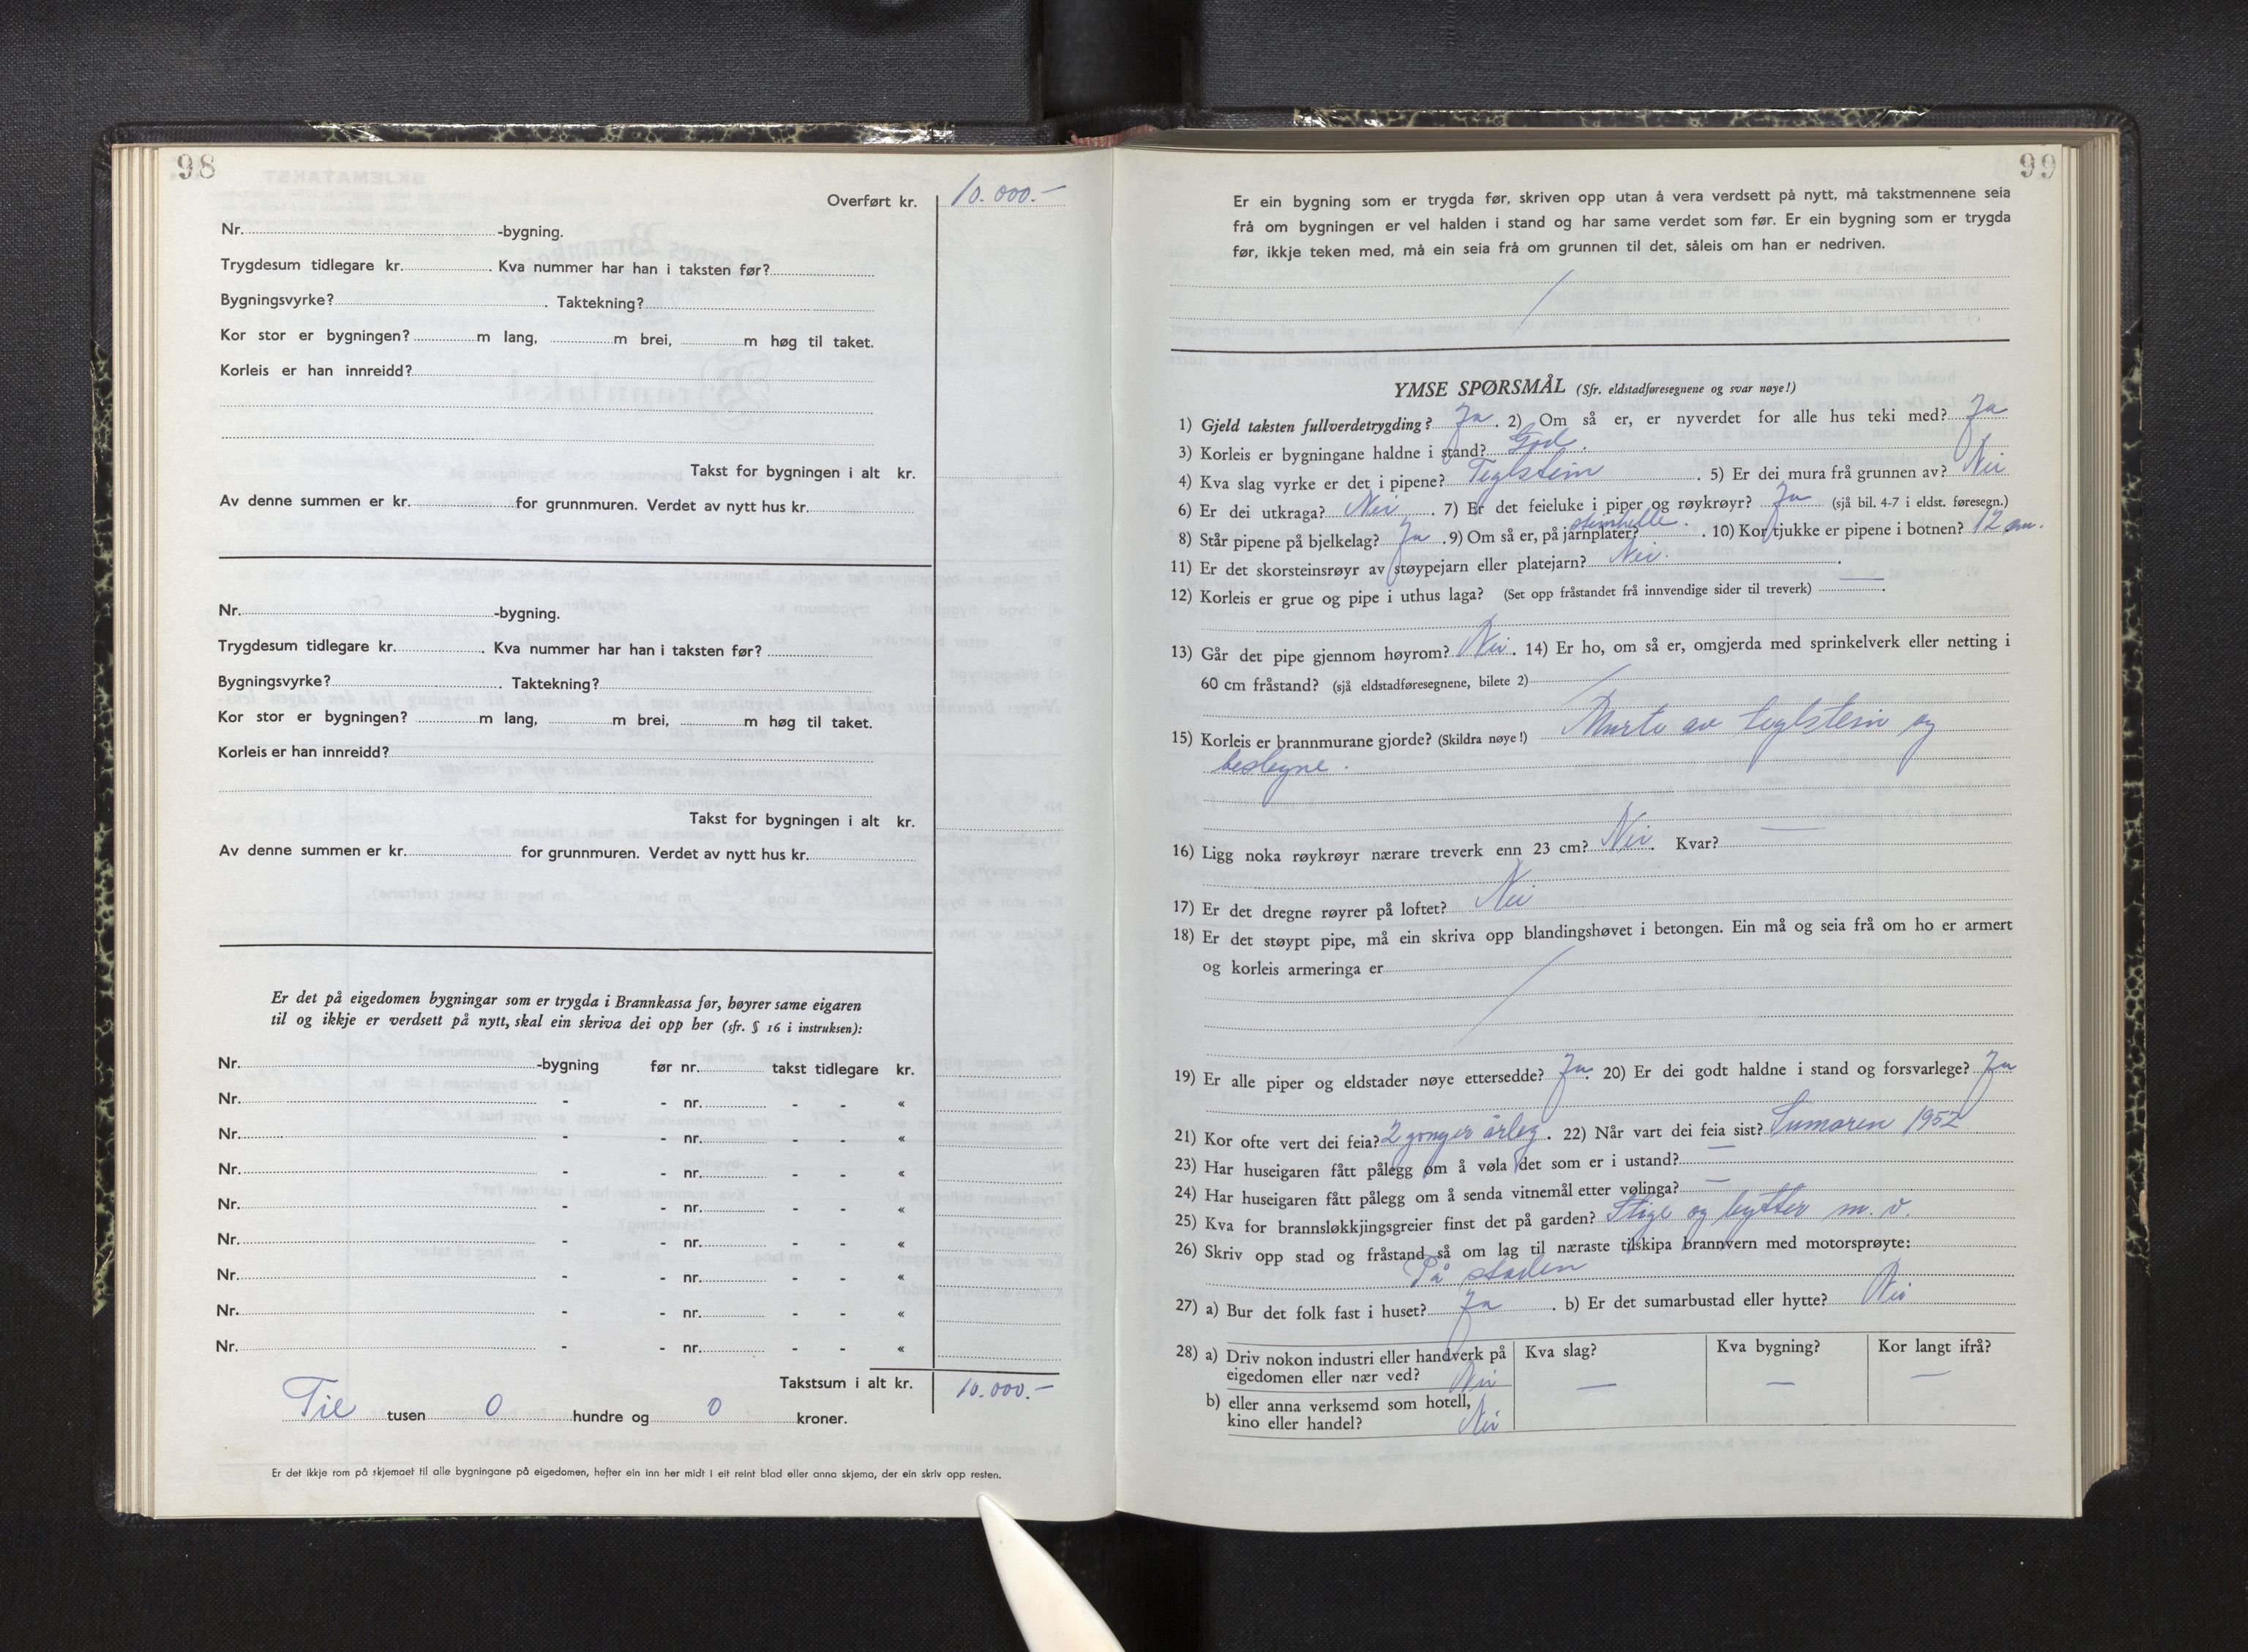 98
Overført kr. 10.000.-
Nr. -bygning.
Trygdesum tidlegare kr. . Kva nummer har han i taksten før?
Bygningsvyrke? . Taktekning?
Kor stor er bygningen? m lang, m brei, m høg til taket.
Korleis er han innreidd?
Takst for bygningen i alt kr.
Av denne summen er kr. for grunnmuren. Verdet av nytt hus kr.
Nr. -bygning.
Trygdesum tidlegare kr. . Kva nummer har han i taksten før?
Bygningsvyrke? . Taktekning?
Kor stor er bygningen? m lang, m brei, m høg til taket.
Korleis er han innreidd?
Takst for bygningen i alt kr.
Av denne summen er kr. for grunnmuren. Verdet av nytt hus kr.
Er det på eigedomen bygningar som er trygda i Brannkassa før, høyrer same eigaren
til og ikkje er verdsett på nytt, skal ein skriva dei opp her (sfr. § 16 i instruksen):
Nr. -bygning før nr. takst tidlegare kr.
Nr. - - nr. - - «
Nr. - - nr. - - «
Nr. - - nr. - - «
Nr. - - nr. - - «
Nr. - - nr. - - «
Nr. - - nr. - - «
Nr. - - nr. - - «
Nr. - - nr. - - «
Takstsum i alt kr. 10.000.-
Tie tusen 0 hundre og 0 kroner.
Er det ikkje rom på skjemaet til alle bygningane på eigedomen, hefter ein inn her midt i eit reint blad eller anna skjema, der ein skriv opp resten.
99
Er ein bygning som er trygda før, skriven opp utan å vera verdsett på nytt, må takstmennene seia
frå om bygningen er vel halden i stand og har same verdet som før. Er ein bygning som er trygda
før, ikkje teken med, må ein seia frå om grunnen til det, såleis om han er nedriven.
YMSE SPØRSMÅL (Sfr. eldstadføresegnene og svar nøye!)
1) Gjeld taksten fullverdetrygding? Ja . 2) Om så er, er nyverdet for alle hus teki med? Ja
3) Korleis er bygningane haldne i stand? God.
4) Kva slag vyrke er det i pipene? Teglstein . 5) Er dei mura frå grunnen av? Nei
6) Er dei utkraga? Nei . 7) Er det feieluke i piper og røykrøyr? Ja (sjå bil. 4-7 i eldst. føresegn.)
8) Står pipene på bjelkelag? Ja . 9) Om så er, på jarnplater? steinhelle. . 10) Kor tjukke er pipene i botnen? 12 cm.
11) Er det skorsteinsrøyr av støypejarn eller platejarn? Nei.
12) Korleis er grue og pipe i uthus laga? (Set opp fråstandet frå innvendige sider til treverk) — .
13) Går det pipe gjennom høyrom? Nei . 14) Er ho, om så er, omgjerda med sprinkelverk eller netting i
60 cm fråstand? (sjå eldstadføresegnene, bilete 2)
15) Korleis er brannmurane gjorde? (Skildra nøye!) Murte av teglstein og
beslegne.
16) Ligg noka røykrøyr nærare treverk enn 23 cm? Nei. Kvar? —
17) Er det dregne røyrer på loftet? Nei
18) Er det støypt pipe, må ein skriva opp blandingshøvet i betongen. Ein må og seia frå om ho er armert
og korleis armeringa er
19) Er alle piper og eldstader nøye ettersedde? Ja. 20) Er dei godt haldne i stand og forsvarlege? Ja
21) Kor ofte vert dei feia? 2 gonger årleg . 22) Når vart dei feia sist? Sumaren 1952
23) Har huseigaren fått pålegg om å vøla det som er i ustand? —
24) Har huseigaren fått pålegg om å senda vitnemål etter vølinga? —
25) Kva for brannsløkkjingsgreier finst det på garden? Stige og bytter m. v.
26) Skriv opp stad og fråstand så om lag til næraste tilskipa brannvern med motorsprøyte:
På staden
27) a) Bur det folk fast i huset? Ja . b) Er det sumarbustad eller hytte? Nei
28) a) Driv nokon industri eller handverk på Kva slag? Kva bygning? Kor langt ifrå?
eigedomen eller nær ved? Nei — — —
b) eller anna verksemd som hotell,
kino eller handel? Nei